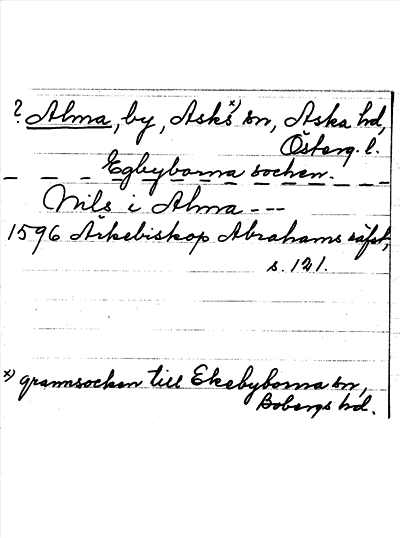 ? Alma, by, Asks x) sn, Aska hd,
Österg. l.
Egbyborna sochen.
Nils i Alma ---
1596 Ärkebiskop Abrahams räfst,
s. 121.
x) grannsocken till Ekebyborna sn,
Bobergs hd.